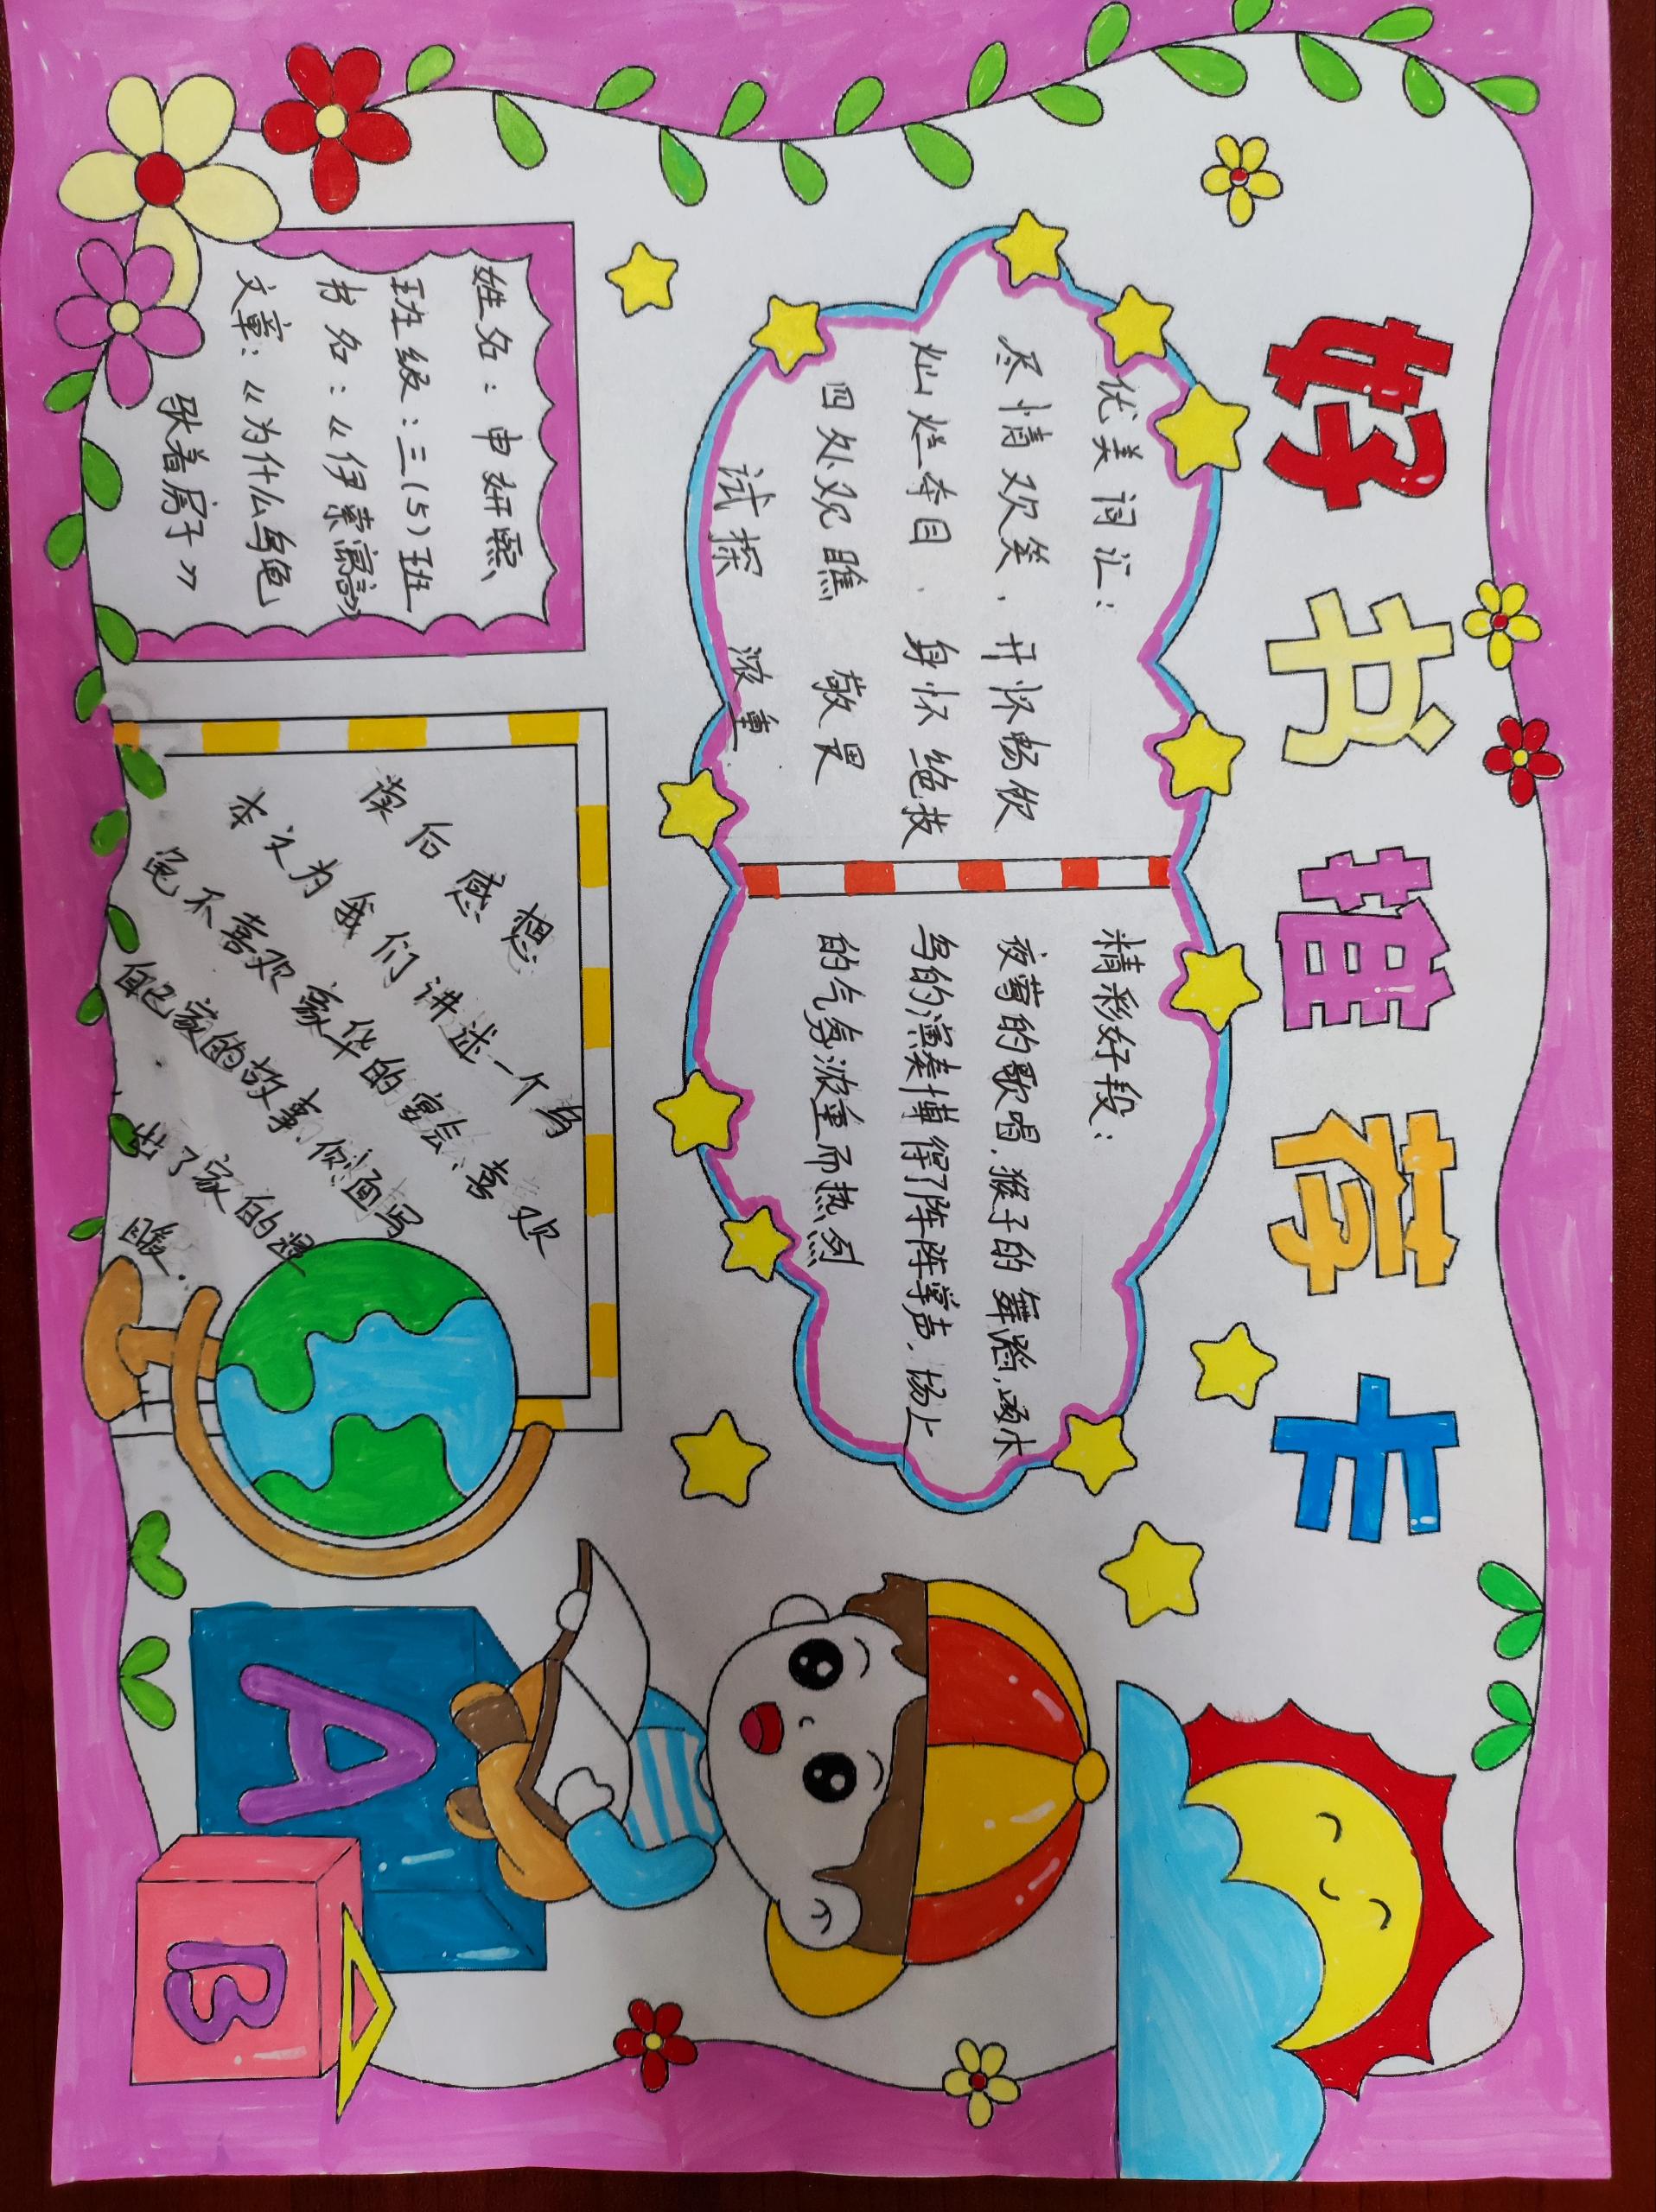 好书推荐卡
优美词汇：
尽情欢笑、开怀畅饮
灿烂夺目、身怀绝技
四处观瞧 敬畏
试探 浓重
精彩好段：
夜莺的歌唱，猴子的舞蹈，啄木
鸟的演奏博得了阵阵掌声，场上
的气氛浓重而热烈
姓名：申妍熙
班级：三(5)班
书名：《伊索寓言》
文章：《为什么乌龟
驮着房子》
读后感想
本文为我们讲述一个乌
龟不喜欢豪华的宴会、喜欢
自己家的故事，侧面写
出了家的温
暖.
A
B